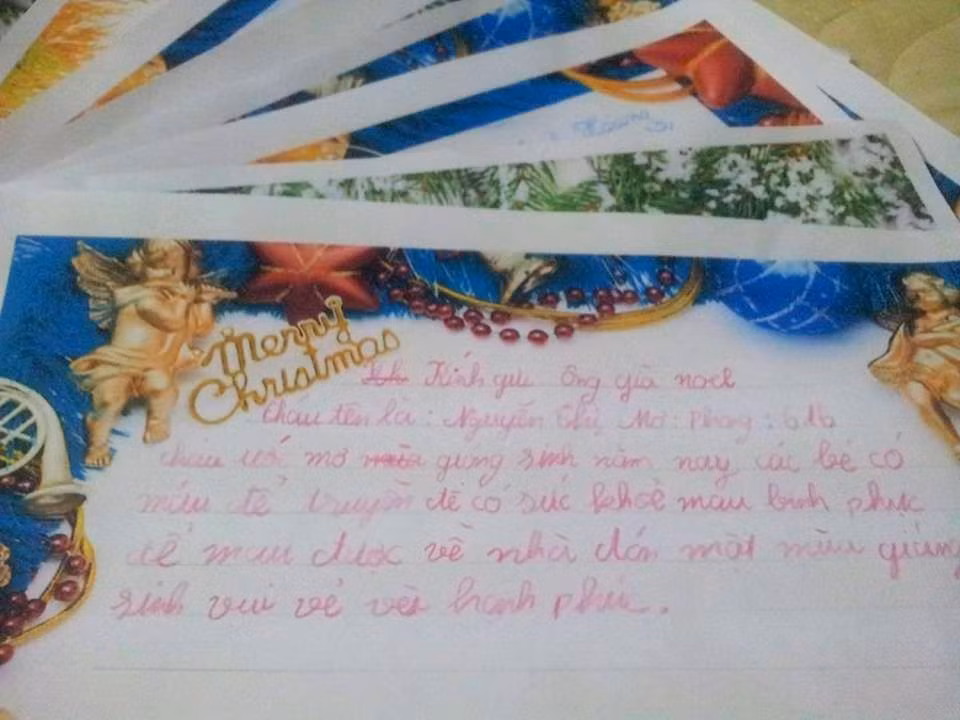 Merry
Christmas
Kính gửi ông già noel
Cháu tên là : Nguyễn Thị Mơ : Phòng : 616
cháu ước mơ giáng sinh năm nay các bé có
máu để truyền để có sức khoẻ mau bình phục
để mau được về nhà đón một mùa giáng
sinh vui vẻ và hạnh phúc.